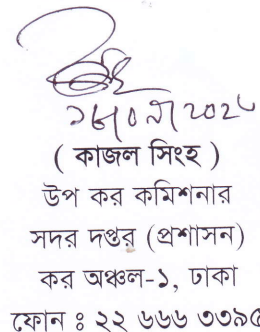 ( কাজল সিংহ )
উপ কর কমিশনার
সদর দপ্তর (প্রশাসন)
কর অঞ্চল-১, ঢাকা
ফোন ঃ ২২ ৬৬৬ ৩৩৯৫